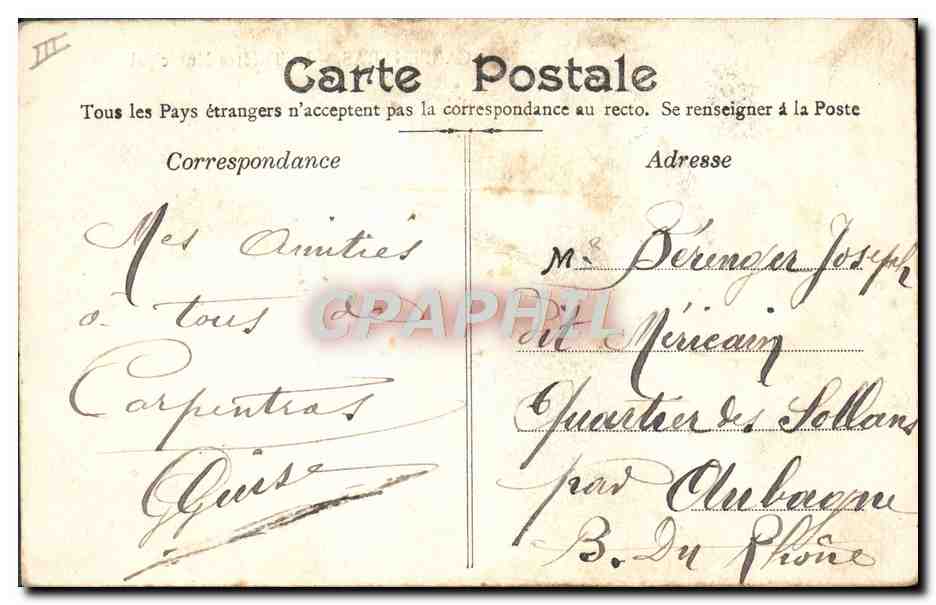 III
Carte Postale
Tous les Pays étrangers n'acceptent pas la correspondance au recto. Se renseigner à la Poste
Correspondance
Mes amitiés
a tous de
Carpentras
Adresse
Mr Bérenger Joseph
dit Méricain
Quartier des Sollans
par Aubagne
B. Du Rhône
CPAPHIL